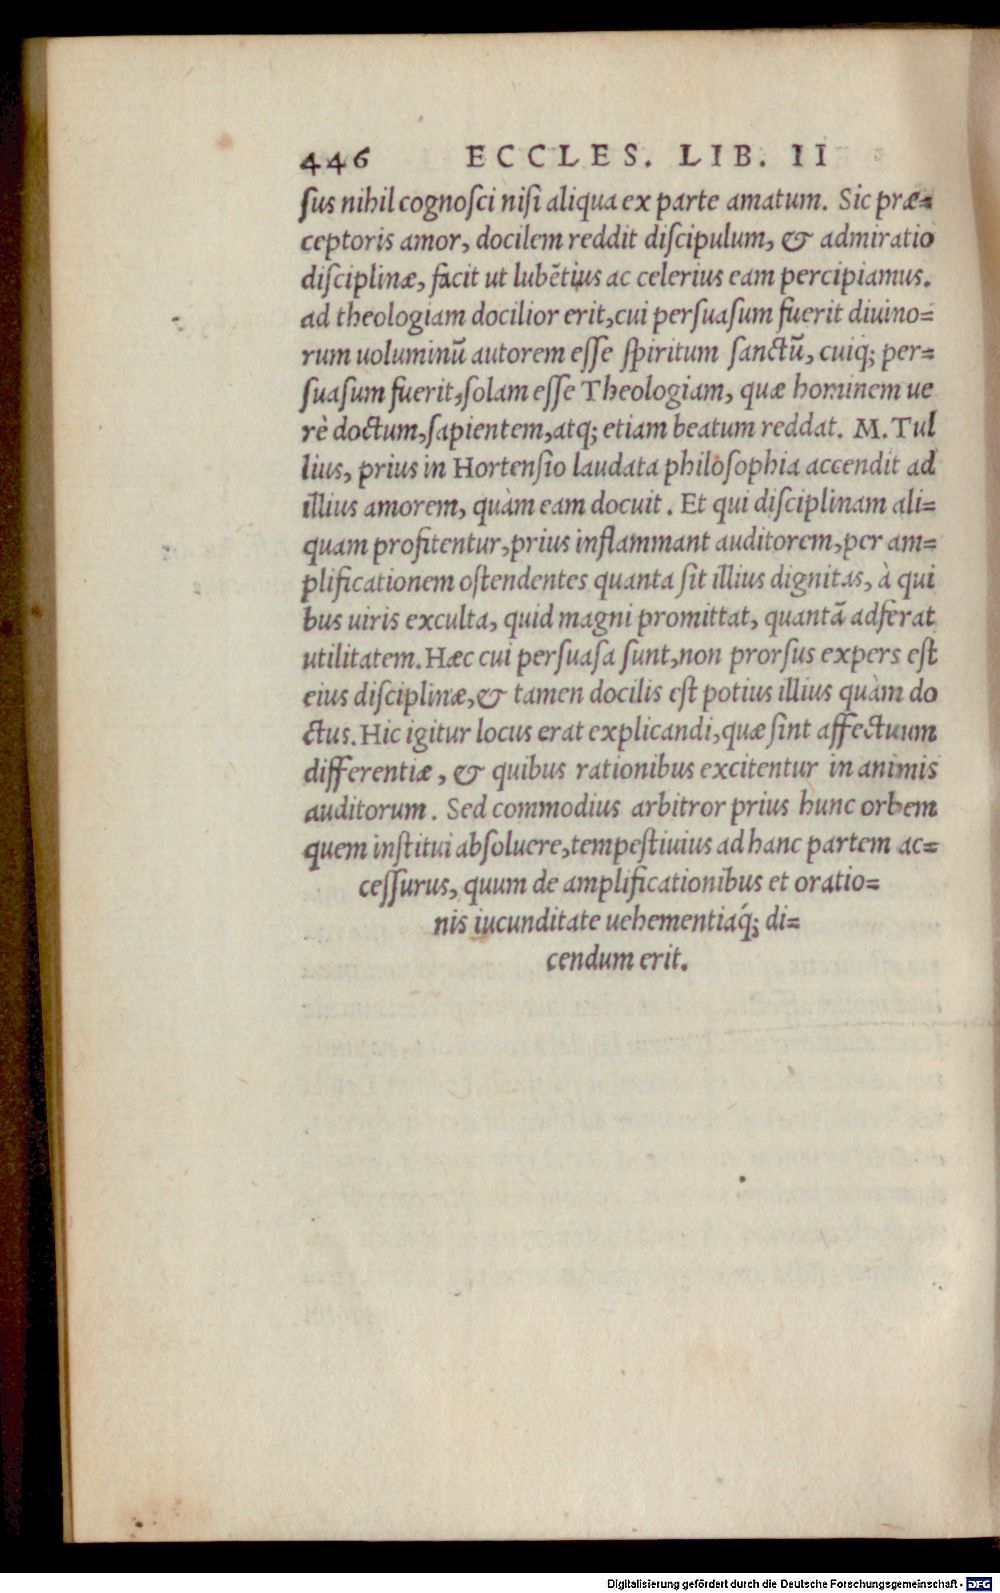 446 ECCLES. LIB. II
sus nihil cognosci nisi aliqua ex parte amatum. Sic præ=
ceptoris amor, docilem reddit discipulum, & admiratio
disciplinæ, facit ut lubētius ac celerius eam percipiamus.
ad theologiam docilior erit, cui persuasum fuerit diuino=
rum uoluminū autorem esse spiritum sanctū, cuiq; per=
suasum fuerit, solam esse Theologiam, quæ hominem ue
rè doctum, sapientem, atq; etiam beatum reddat. M. Tul
lius, prius in Hortensio laudata philosophia accendit ad
illius amorem, quàm eam docuit. Et qui disciplinam ali=
quam profitentur, prius inflammant auditorem, per am=
plificationem ostendentes quanta sit illius dignitas, à qui
bus uiris exculta, quid magni promittat, quantā adferat
utilitatem. Hæc cui persuasa sunt, non prorsus expers est
eius disciplinæ, & tamen docilis est potius illius quàm do
ctus. Hic igitur locus erat explicandi, quæ sint affectuum
differentiæ, & quibus rationibus excitentur in animis
auditorum. Sed commodius arbitror prius hunc orbem
quem institui absoluere, tempestiuius ad hanc partem ac=
cessurus, quum de amplificationibus et oratio=
nis iucunditate uehementiaq́; di=
cendum erit.
Digitalisierung gefördert durch die Deutsche Forschungsgemeinschaft - DFG